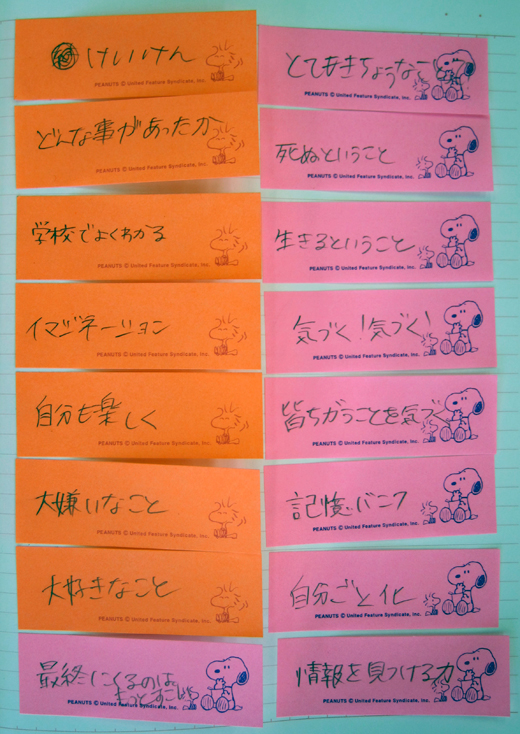 けいけん
PEANUTS © United Feature Syndicate, Inc.
どんな事があったか
PEANUTS © United Feature Syndicate, Inc.
学校でよくわかる
PEANUTS © United Feature Syndicate, Inc.
イマジネーション
PEANUTS © United Feature Syndicate, Inc.
自分も楽しく
PEANUTS © United Feature Syndicate, Inc.
大嫌いなこと
PEANUTS © United Feature Syndicate, Inc.
大好きなこと
PEANUTS © United Feature Syndicate, Inc.
最終にくるのは。
PEANUTS © United Feature Syndicate, Inc.
とてもきちょうな
PEANUTS © United Feature Syndicate, Inc.
死ぬということ
PEANUTS © United Feature Syndicate, Inc.
生きるということ
PEANUTS © United Feature Syndicate, Inc.
気づく!気づく!
PEANUTS © United Feature Syndicate, Inc.
皆ちがうことを気づく
PEANUTS © United Feature Syndicate, Inc.
記憶バンク
PEANUTS © United Feature Syndicate, Inc.
自分ごと化
PEANUTS © United Feature Syndicate, Inc.
情報を見つける力
PEANUTS © United Feature Syndicate, Inc.